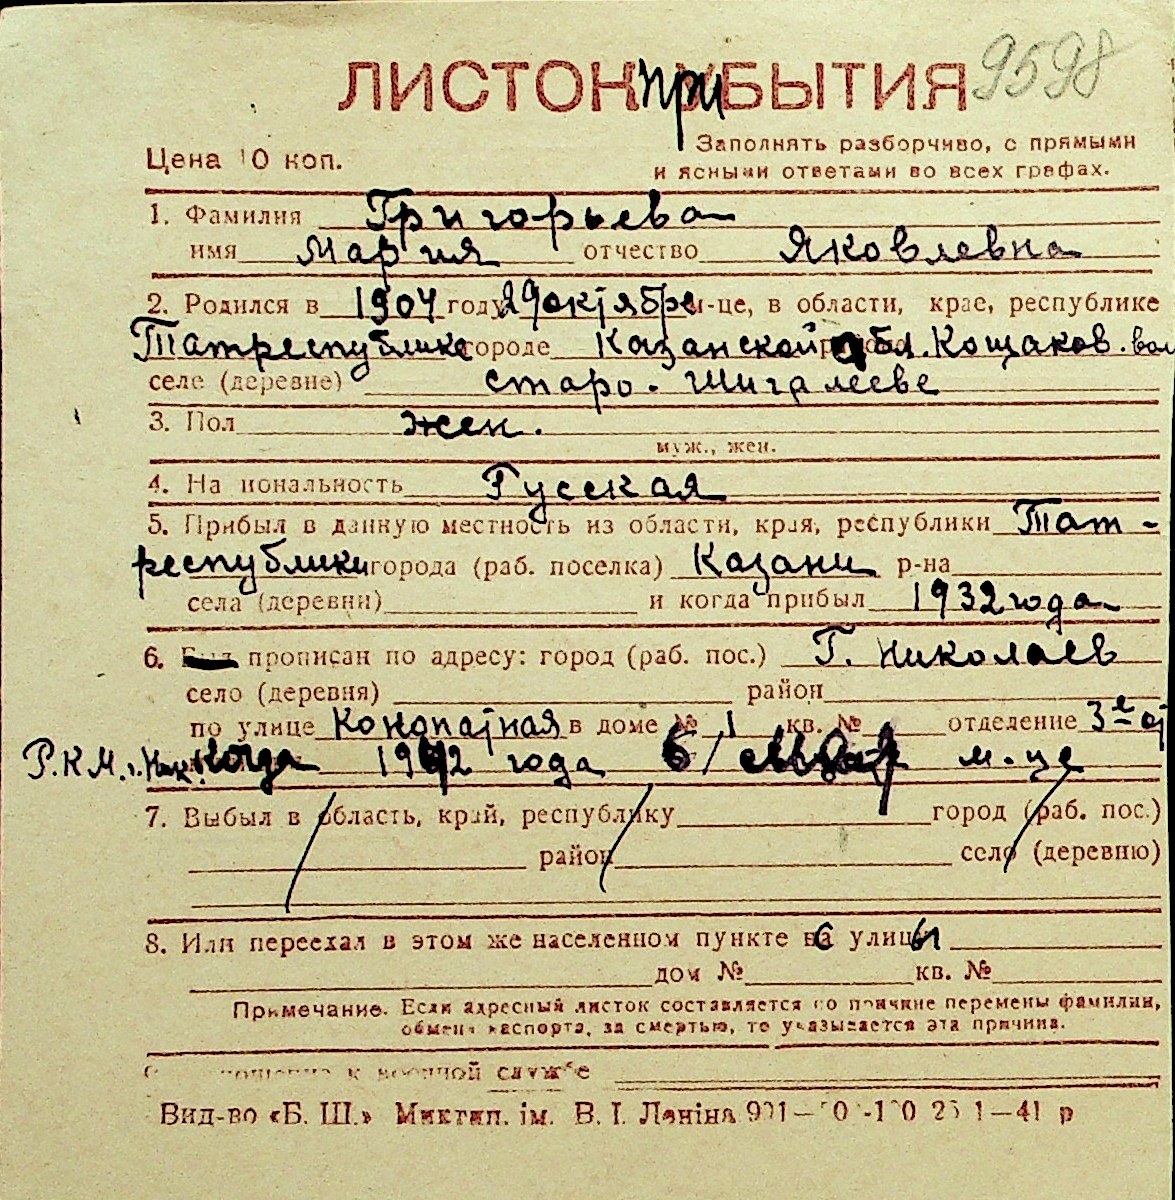 9598
ЛИСТОК при БЫТИЯ
Заполнять разборчиво, с прямыми
Цена 10 коп.
и ясными ответами во всех графах.
1. Фамилия Григорьева
имя Мария отчество Яковлевна
2. Родился в 1904 году 29 октября м-це, в области, крае, республике
Татреспублике городе Казанской обл. Кощаков. вол
селе (деревне) старо-Шигалееве
3. Пол жен.
муж., жен.
4. Национальность Русская
5. Прибыл в данную местность из области, края, республики Тат-
республики города (раб. поселка) Казани р-на
села (деревни) и когда прибыл 1932 года
6. прописан по адресу: город (раб. пос.) г. Николаев
село (деревня) район
по улице Конопатная в доме № 1 кв. № отделение 3е
Р.К.М. г. Ник. когда 1942 года 6/ м-це
7. Выбыл в область, край, республику город (раб. пос.)
район село (деревню)
8. Или переехал в этом же населенном пункте с улицы
дом № кв. №
Примечание. Если адресный листок составляется по причине перемены фамилии,
обмена паспорта, за смертью, то указывается эта причина.
к военной службе
Вид-во «Б. Ш.» Миктип. ім. В. І. Леніна 1—41 р